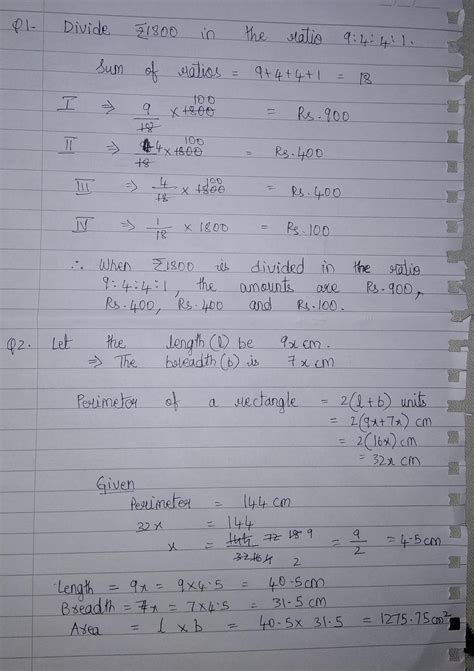 Q1. Divide ₹1800 in the ratio 9:4:4:1.
Sum of ratios = 9+4+4+1 = 18
I ⇒ 9/18 × 1800 100 = Rs.900
II ⇒ 4/18 × 1800 100 = Rs.400
III ⇒ 4/18 × 1800 100 = Rs.400
IV ⇒ 1/18 × 1800 = Rs.100
∴ When ₹1800 is divided in the ratio
9:4:4:1, the amounts are Rs.900,
Rs.400, Rs.400 and Rs.100.
Q2. Let the length(l) be 9x cm.
⇒ The breadth(b) is 7x cm
Perimeter of a rectangle = 2(l+b) units
= 2(9x+7x) cm
= 2(16x) cm
= 32x cm
Given
Perimeter = 144 cm
32x = 144
x = 144 72 18 9 / 32 16 4 2 = 9/2 = 4.5cm
Length = 9x = 9×4.5 = 40.5cm
Breadth = 7x = 7×4.5 = 31.5cm
Area = l × b = 40.5 × 31.5 = 1275.75cm²